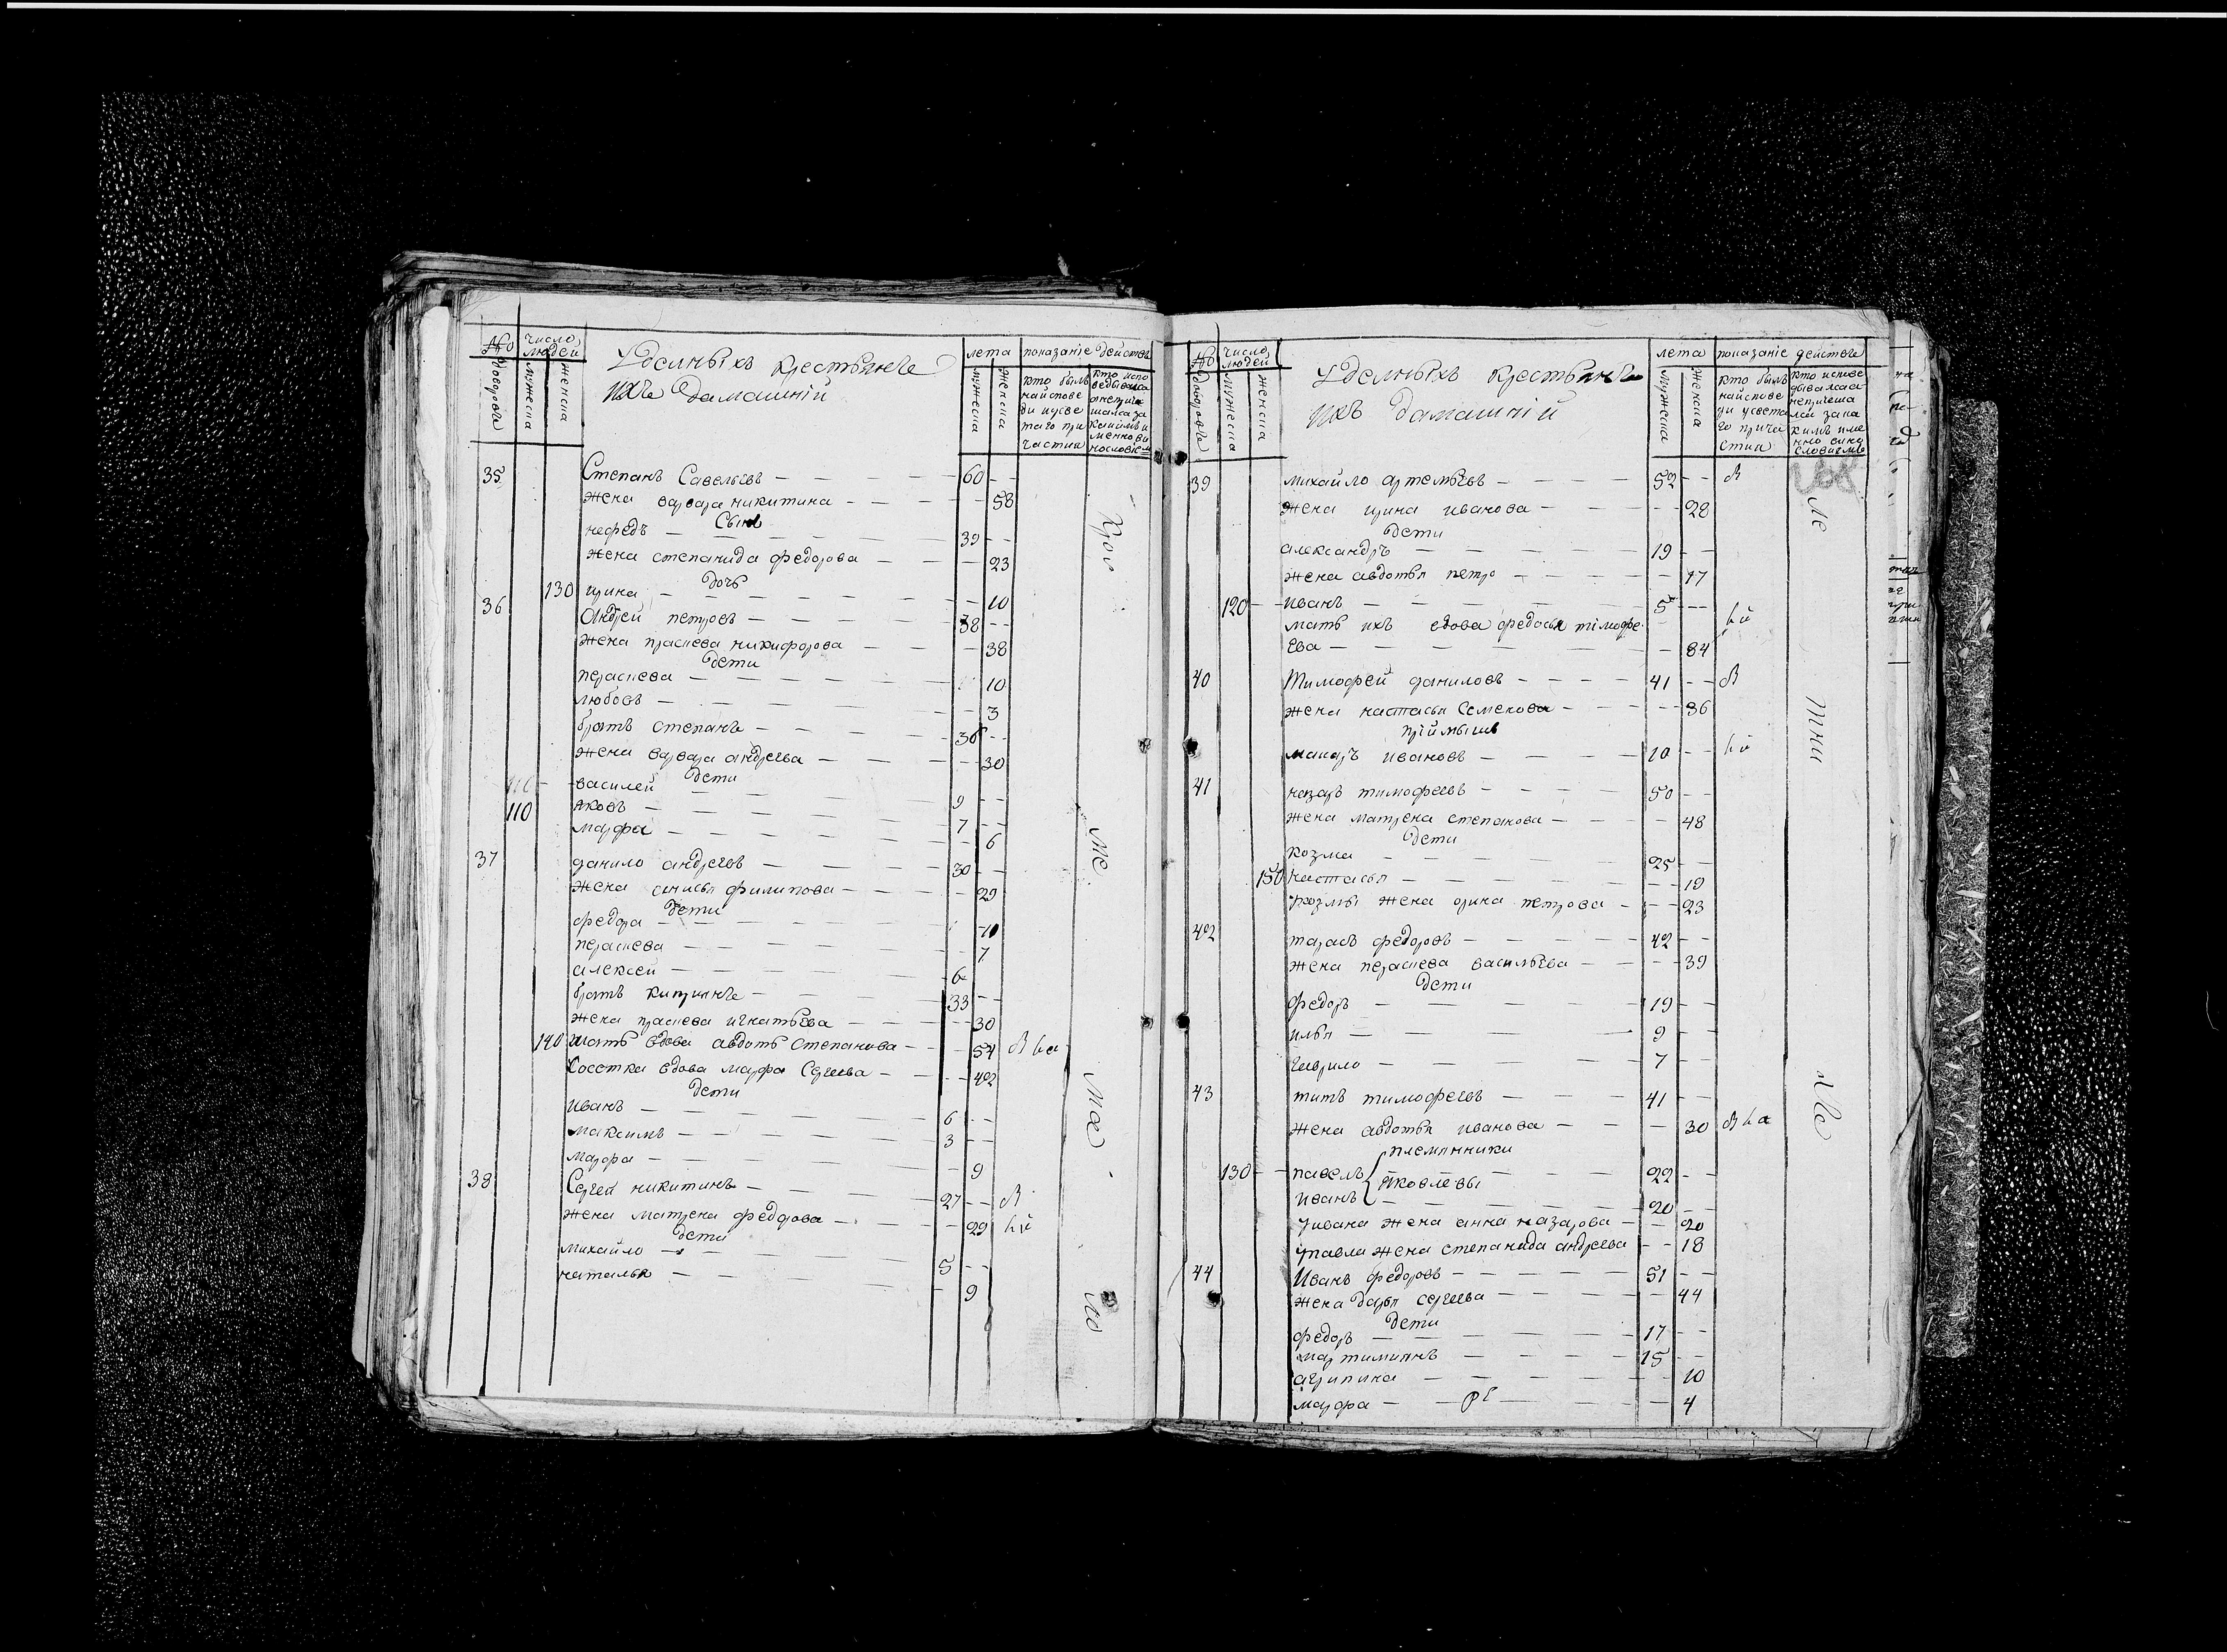 № дворовъ
число людей
мужеска
женска
Уделныхъ крестьянъ
ихъ дамашний
лета
мужеска
женска
показание действъ
кто былъ
35 Степанъ Савельевъ 60
жена варвара никитина 58
Сынъ
нефедъ 39
жена степанида федорова 23
дочь
130 ирина 10
36 Андрей петровъ 38
жена праскева никифорова 38
дети
параскева 10
любовь 3
братъ степанъ
жена варвара андреева 30
дети
василей 9
110 яковъ 7
марфа 6
37 данило андреевъ 30
жена анисья филипова 29
дети
федора
параскева 7
алексей 6
братъ киприянъ 33
жена праскева игнатьева 30
140 мать вдова авдоть степанова 54
вдова марфа Сергеева 42
дети
иванъ 6
максимъ 3
марфа 9
38 Сергей никитинъ 27
жена матрена федорова 29
дети
михайло 5
наталья 9
№ дворовъ
число людей
мужеска
женска
Уделныхъ крестьянъ
ихъ дамашний
лета
мужеска
женска
показание действъ
кто былъ
39 михайло артемьевъ 52
жена ирина иванова 28
дети
александръ 19
жена авдотья петро 17
120 иванъ 5
мать ихъ вдова федосья тимофе
ева 84
40 Тимофей даниловъ 41
жена настасья Семенова 36
приймышъ
макаръ ивановъ 10
41 назаръ тимофеевъ 50
жена матрена степанова 48
дети
козма 25
150 настасья 19
козмы жена орина петрова 23
42 тарасъ федоровъ 42
жена параскева васильева 39
дети
федоръ 19
илья 9
гаврило 7
43 титъ тимофеевъ 41
жена авдотья иванова 30
племянники
130 павелъ яковлевы 22
иванъ 20
у ивана жена анна назарова 20
у павла жена степанида андреева 18
44 Иванъ федоровъ 51
жена дарья сергеева 44
дети
федоръ 17
мартимиянъ 15
агрипина 10
марфа 4